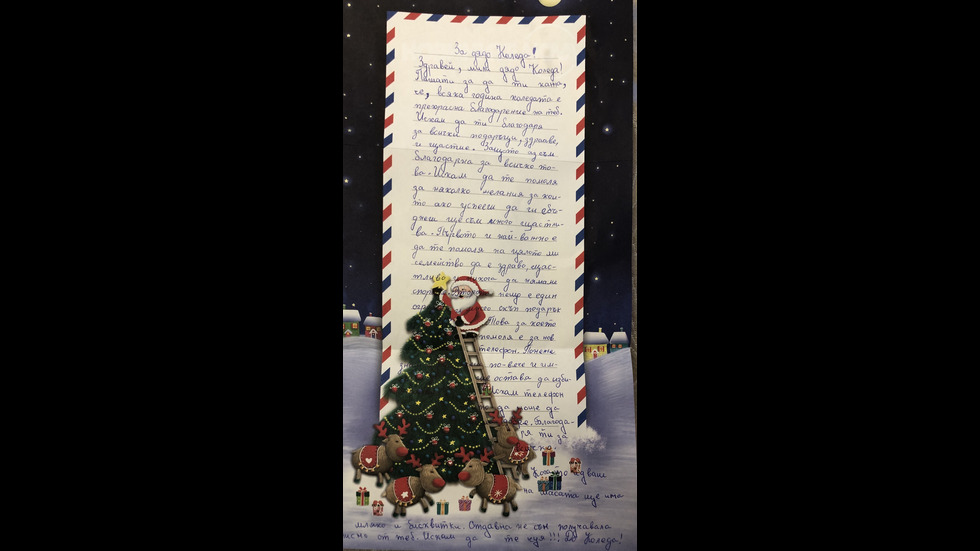 За дядо Коледа!
Здравей, мили дядо Коледа!
Пиша ти за да ти кажа,
че, всяка година коледата е
прекрасна благодарение на теб.
Искам да ти благодаря
за всички подаръци, здраве,
и щастие. Защото аз съм
благодарна за всичко то-
ва. Искам да те помоля
за няколко желания за кои-
то ако успееш да ги сбъ-
днеш ще съм много щастли-
ва. Първото и най-важно е
да те помоля на цялото ми
семейство да е здраво, щас-
тливо и никога да нямаме
нещо е един
скъп подарък
Това за което
помоля е за нов
телефон. Понеже
по-вече и им-
остава да изби-
Искам телефон
да може да
Благода-
ря ти за
Когато идваш
на масата ще има
мляко и бисквитки. Отдавна не съм получавала
от теб. Искам да те чуя!!! До Коледа!